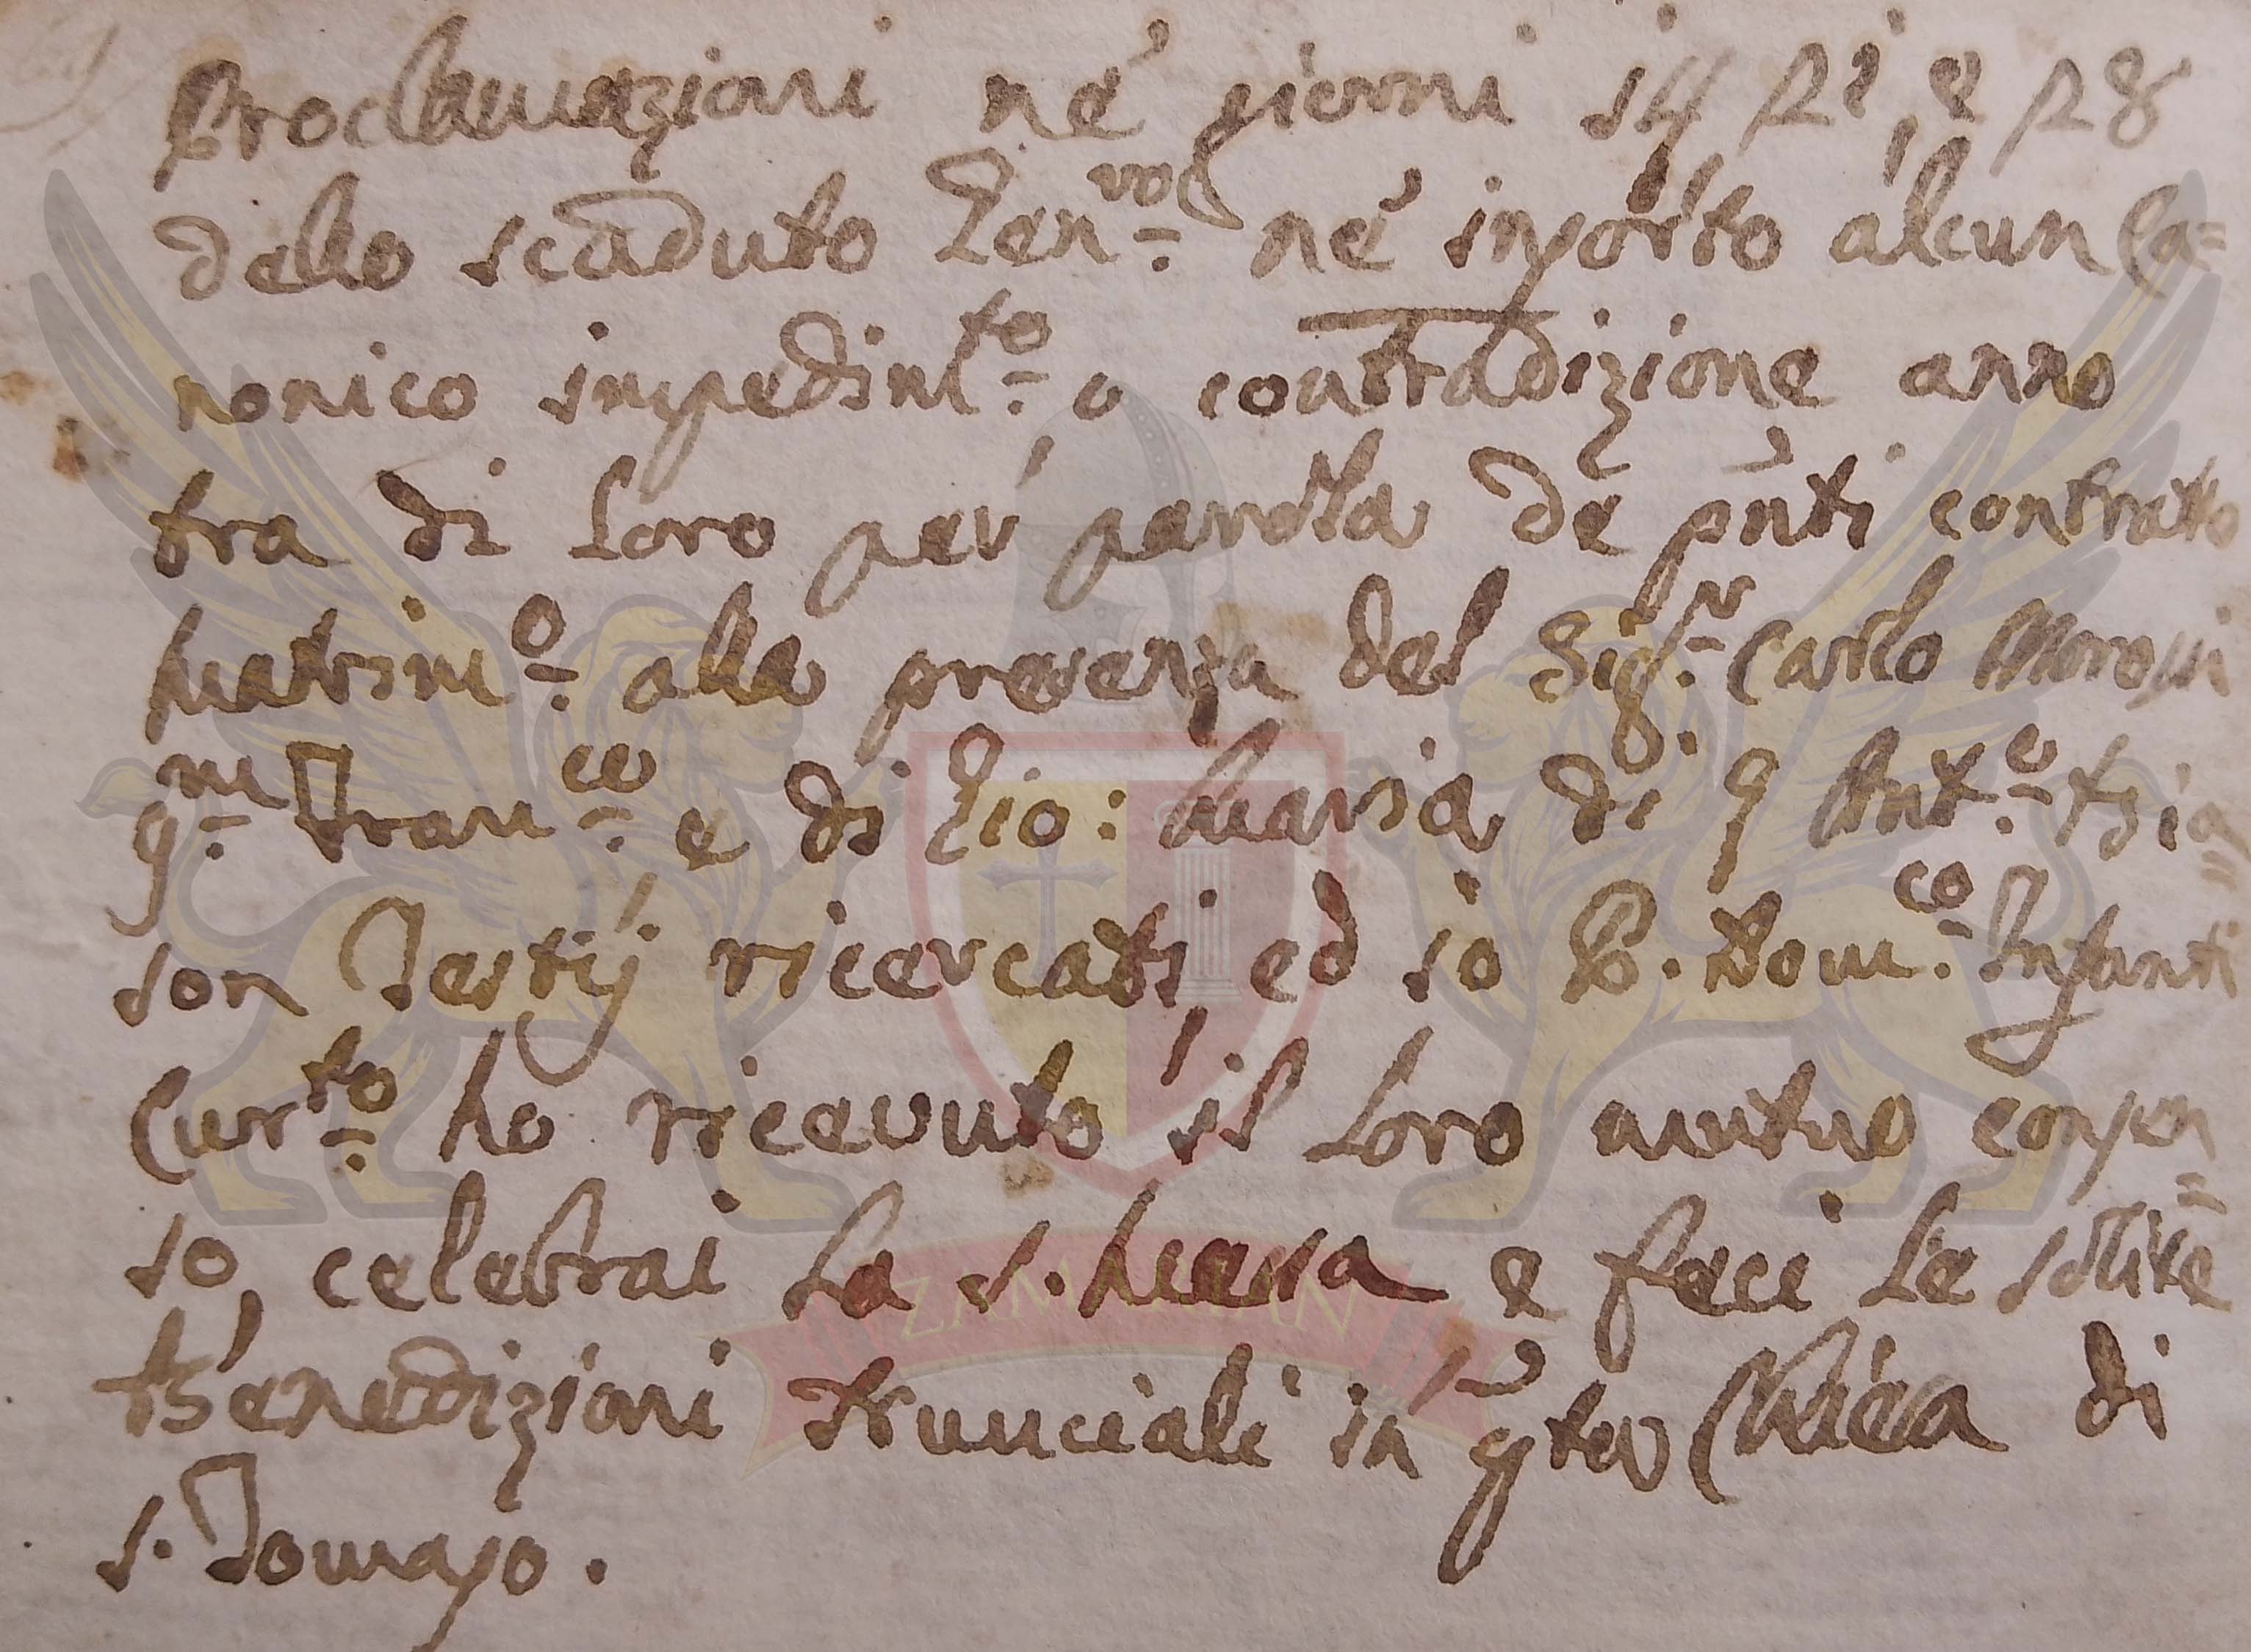 Proclamazioni né giorni 14 21, e 28
dello scaduto Gen:vo né insorto alcun Ca=
nonico impedim:to o contradizione anno
tra di loro per parola de pñti contratto
Matrim:o alla presenza del Sig:r Carlo Moroni
q:m Fran:co e di Gio: Maria di q Ant:o Bia
son Testij ricercati, ed io P. Dom:co Infanti
Cur:to ho ricevuto il loro mutuo consen
so, celebrai la S. Messa e feci le solite
Benedizioni Nunciali in qta Chiea di
S. Tomaso.
ZAMARIAN